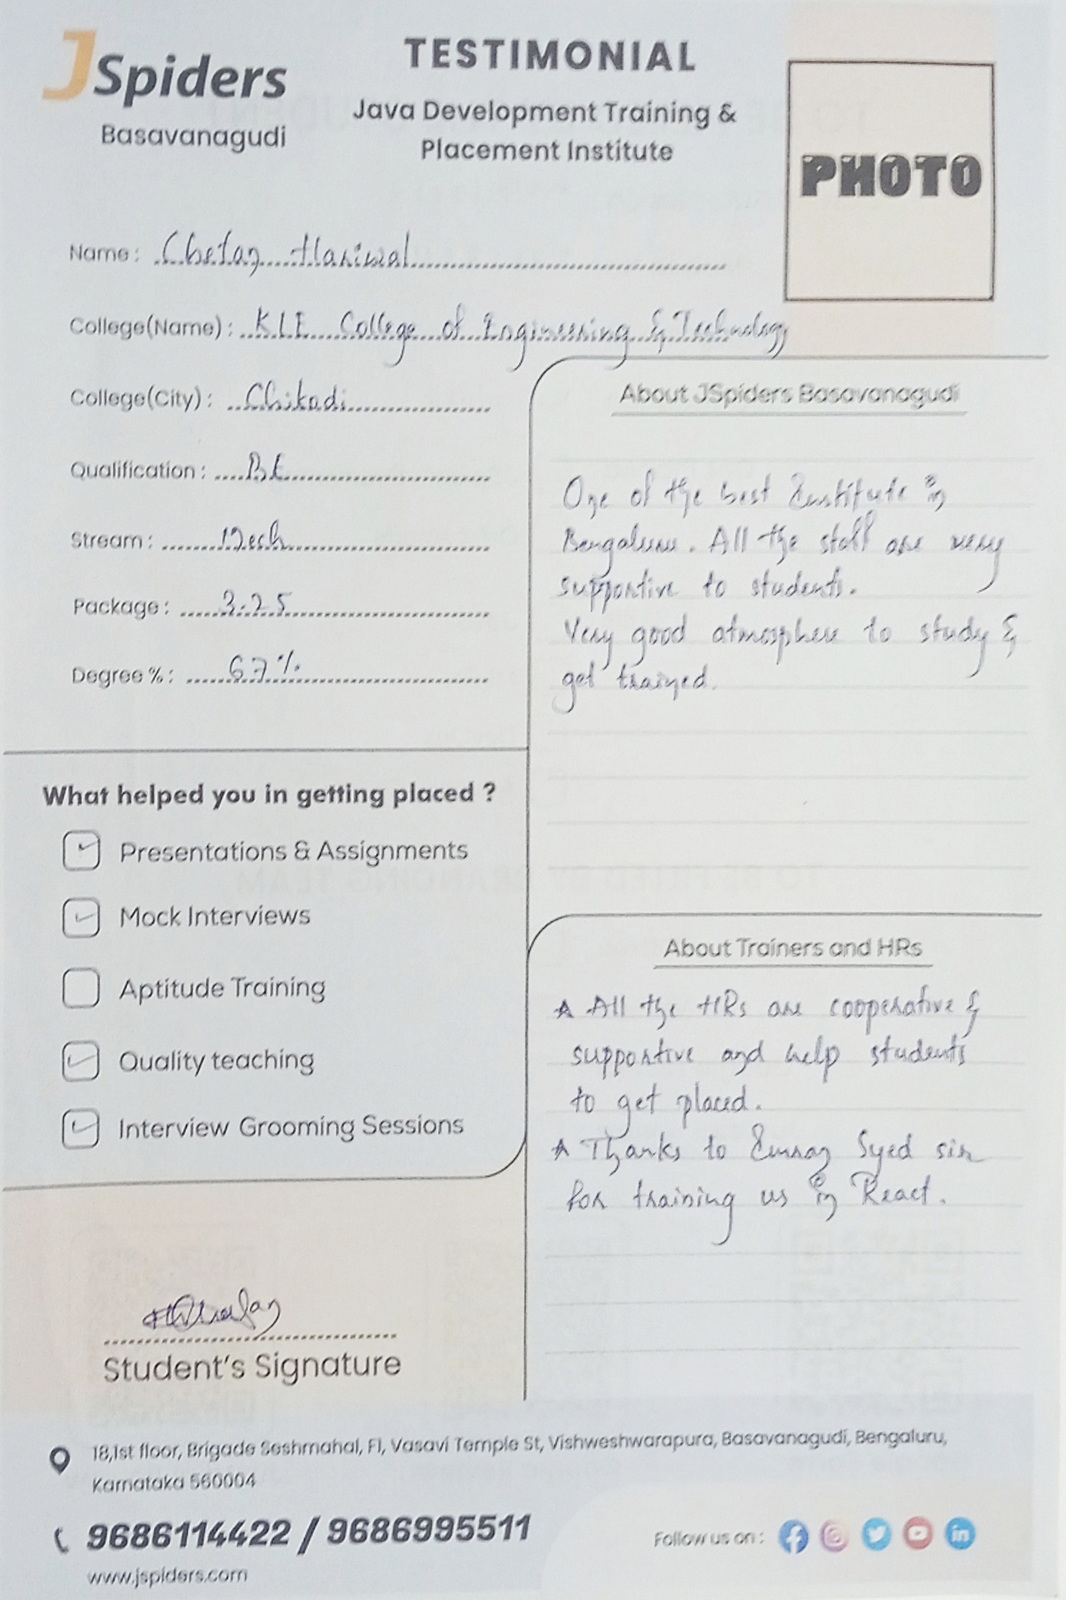 JSpiders
Basavanagudi
TESTIMONIAL
Java Development Training &
Placement Institute
PHOTO
Name : Chetan Hasiwal
College(Name) : KLE College of Engineering & Technology
College(City) : Chikodi
Qualification : BE
Stream : Mech
Package : 3.25
Degree % : 67%
What helped you in getting placed ?
Presentations & Assignments
Mock Interviews
Aptitude Training
Quality teaching
Interview Grooming Sessions
Student's Signature
About JSpiders Basavanagudi
One of the best Institute in
Bengaluru. All the staff are very
supportive to students.
Very good atmosphere to study &
get trained.
About Trainers and HRs
All the HRs are cooperative &
supportive and help students
to get placed.
Thanks to Imran Syed sir
for training us in React.
18,1st floor, Brigade Seshmahal, Fl, Vasavi Temple St, Vishweshwarapura, Basavanagudi, Bengaluru,
Karnataka 560004
9686114422 / 9686995511
www.jspiders.com
Follow us on :